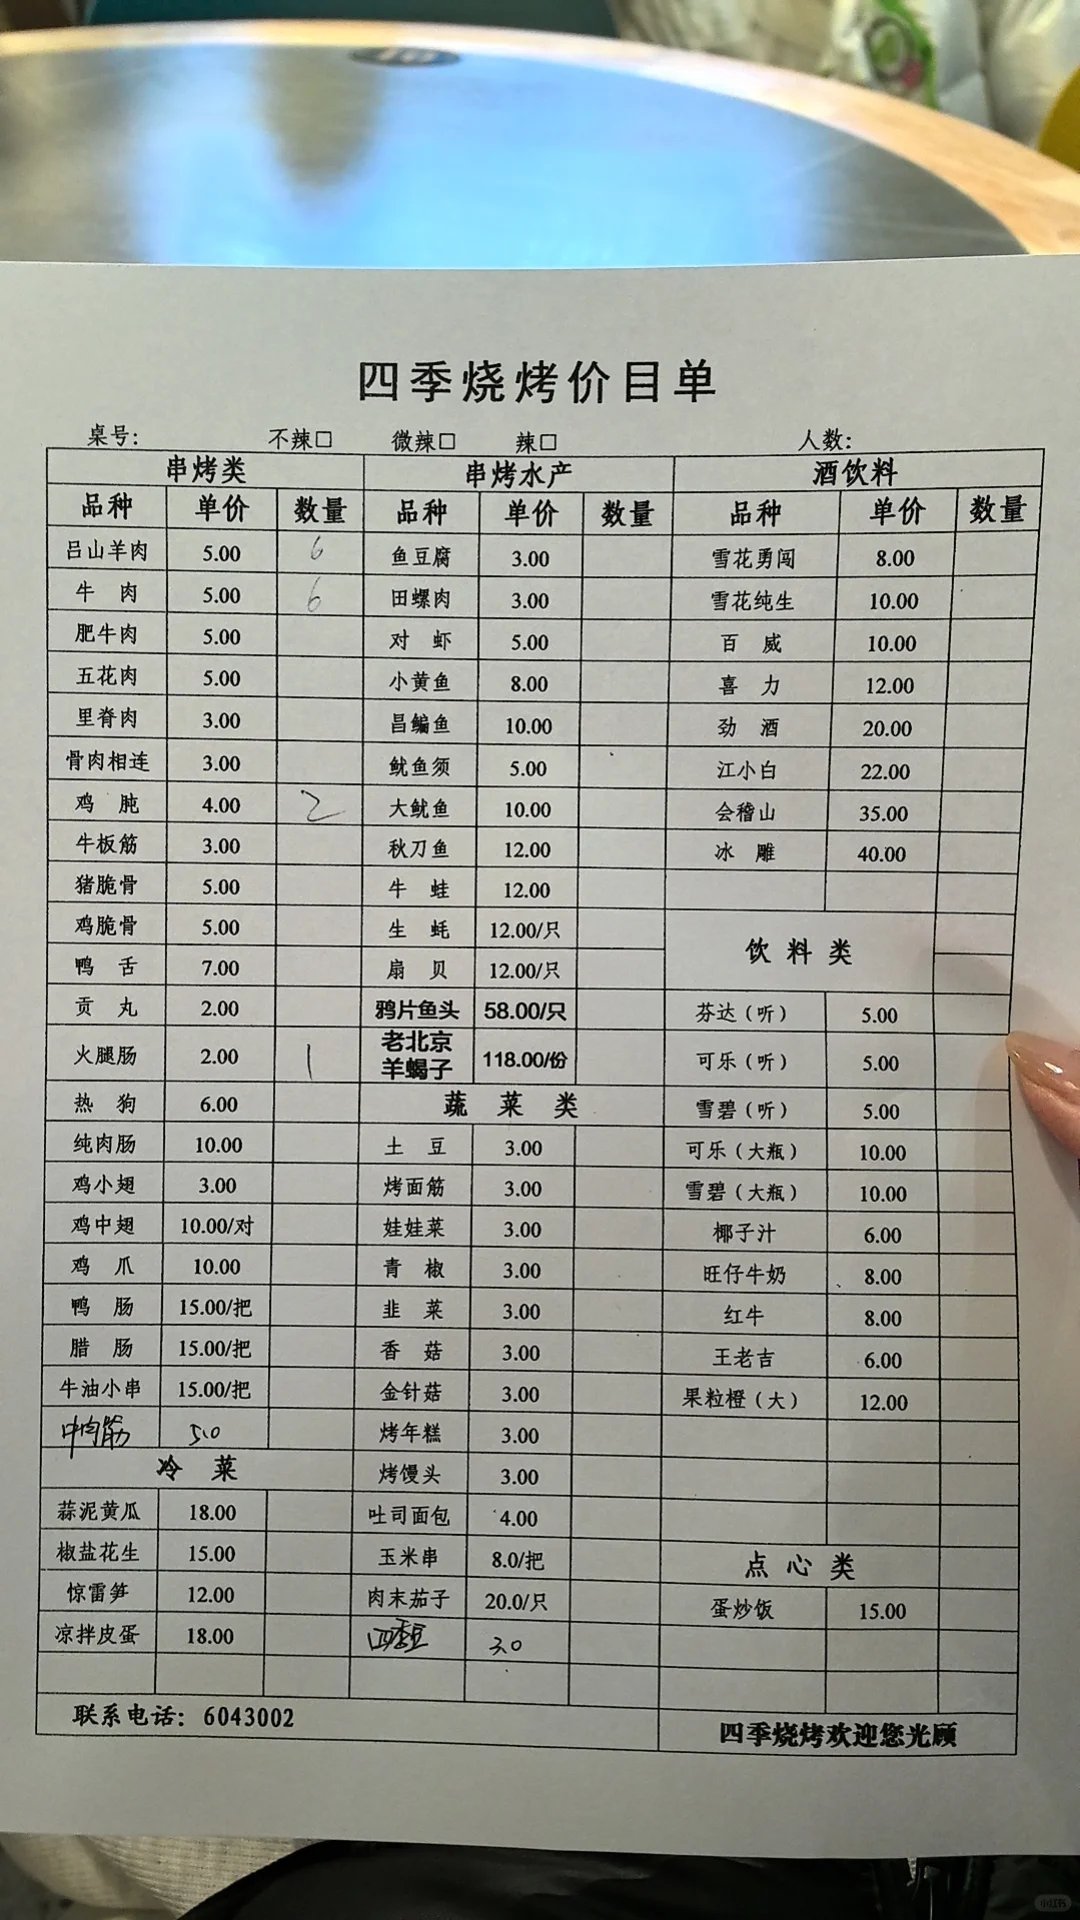 四季烧烤价目单
桌号: 不辣□ 微辣□ 辣□ 人数:
串烤类 串烤水产 酒饮料
品种 单价 数量 品种 单价 数量 品种 单价 数量
吕山羊肉 5.00 6 鱼豆腐 3.00 雪花勇闯 8.00
牛肉 5.00 6 田螺肉 3.00 雪花纯生 10.00
肥牛肉 5.00 对虾 5.00 百威 10.00
五花肉 5.00 小黄鱼 8.00 喜力 12.00
里脊肉 3.00 昌鳊鱼 10.00 劲酒 20.00
骨肉相连 3.00 鱿鱼须 5.00 江小白 22.00
鸡肫 4.00 2 大鱿鱼 10.00 会稽山 35.00
牛板筋 3.00 秋刀鱼 12.00 冰雕 40.00
猪脆骨 5.00 牛蛙 12.00
鸡脆骨 5.00 生蚝 12.00/只 饮料类
鸭舌 7.00 扇贝 12.00/只
贡丸 2.00 鸦片鱼头 58.00/只 芬达（听） 5.00
火腿肠 2.00 1 老北京羊蝎子 118.00/份 可乐（听） 5.00
热狗 6.00 蔬菜类 雪碧（听） 5.00
纯肉肠 10.00 土豆 3.00 可乐（大瓶） 10.00
鸡小翅 3.00 烤面筋 3.00 雪碧（大瓶） 10.00
鸡中翅 10.00/对 娃娃菜 3.00 椰子汁 6.00
鸡爪 10.00 青椒 3.00 旺仔牛奶 8.00
鸭肠 15.00/把 韭菜 3.00 红牛 8.00
腊肠 15.00/把 香菇 3.00 王老吉 6.00
牛油小串 15.00/把 金针菇 3.00 果粒橙（大） 12.00
肉筋 5.0 烤年糕 3.00
冷菜 烤馒头 3.00
蒜泥黄瓜 18.00 吐司面包 4.00
椒盐花生 15.00 玉米串 8.0/把 点心类
惊雷笋 12.00 肉末茄子 20.0/只 蛋炒饭 15.00
凉拌皮蛋 18.00 四季豆 3.0
联系电话: 6043002 四季烧烤欢迎您光顾
小红书